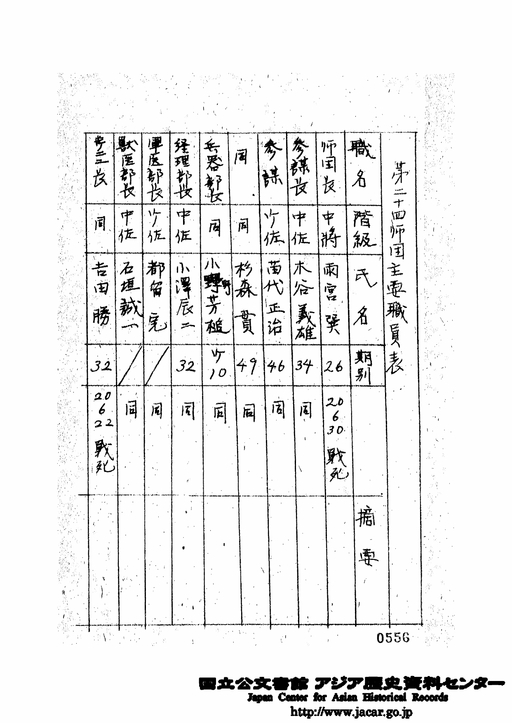 第二十四师団主要職員表
職名 階級 氏名 期別 摘要
师団長 中將 雨宮巽 26 20 6 30 戰死
参謀長 中佐 木谷義雄 34 同
参謀 少佐 苗代正治 46 同
同 同 杉森貢 49 同
兵器部長 同 小野芳 少10 同
経理部長 中佐 小澤辰二 32 同
軍医部長 少佐 都留完 / 同
獣医部長 中佐 石垣誠一 / 同
長 同 吉田勝 32 20 6 22 戰死
0556
国立公文書館 アジア歴史資料センター
Japan Center for Asian Historical Records
http://www.jacar.go.jp